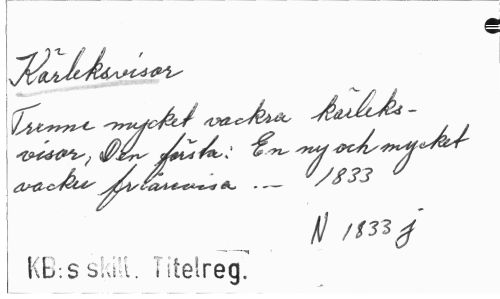 Kärleksvisor
Trenne mycket vackra kärleks-
visor, Den första: En ny och mycket
vacker friarevisa --- 1833
N 1833 j
KB:s skill. Titelreg.